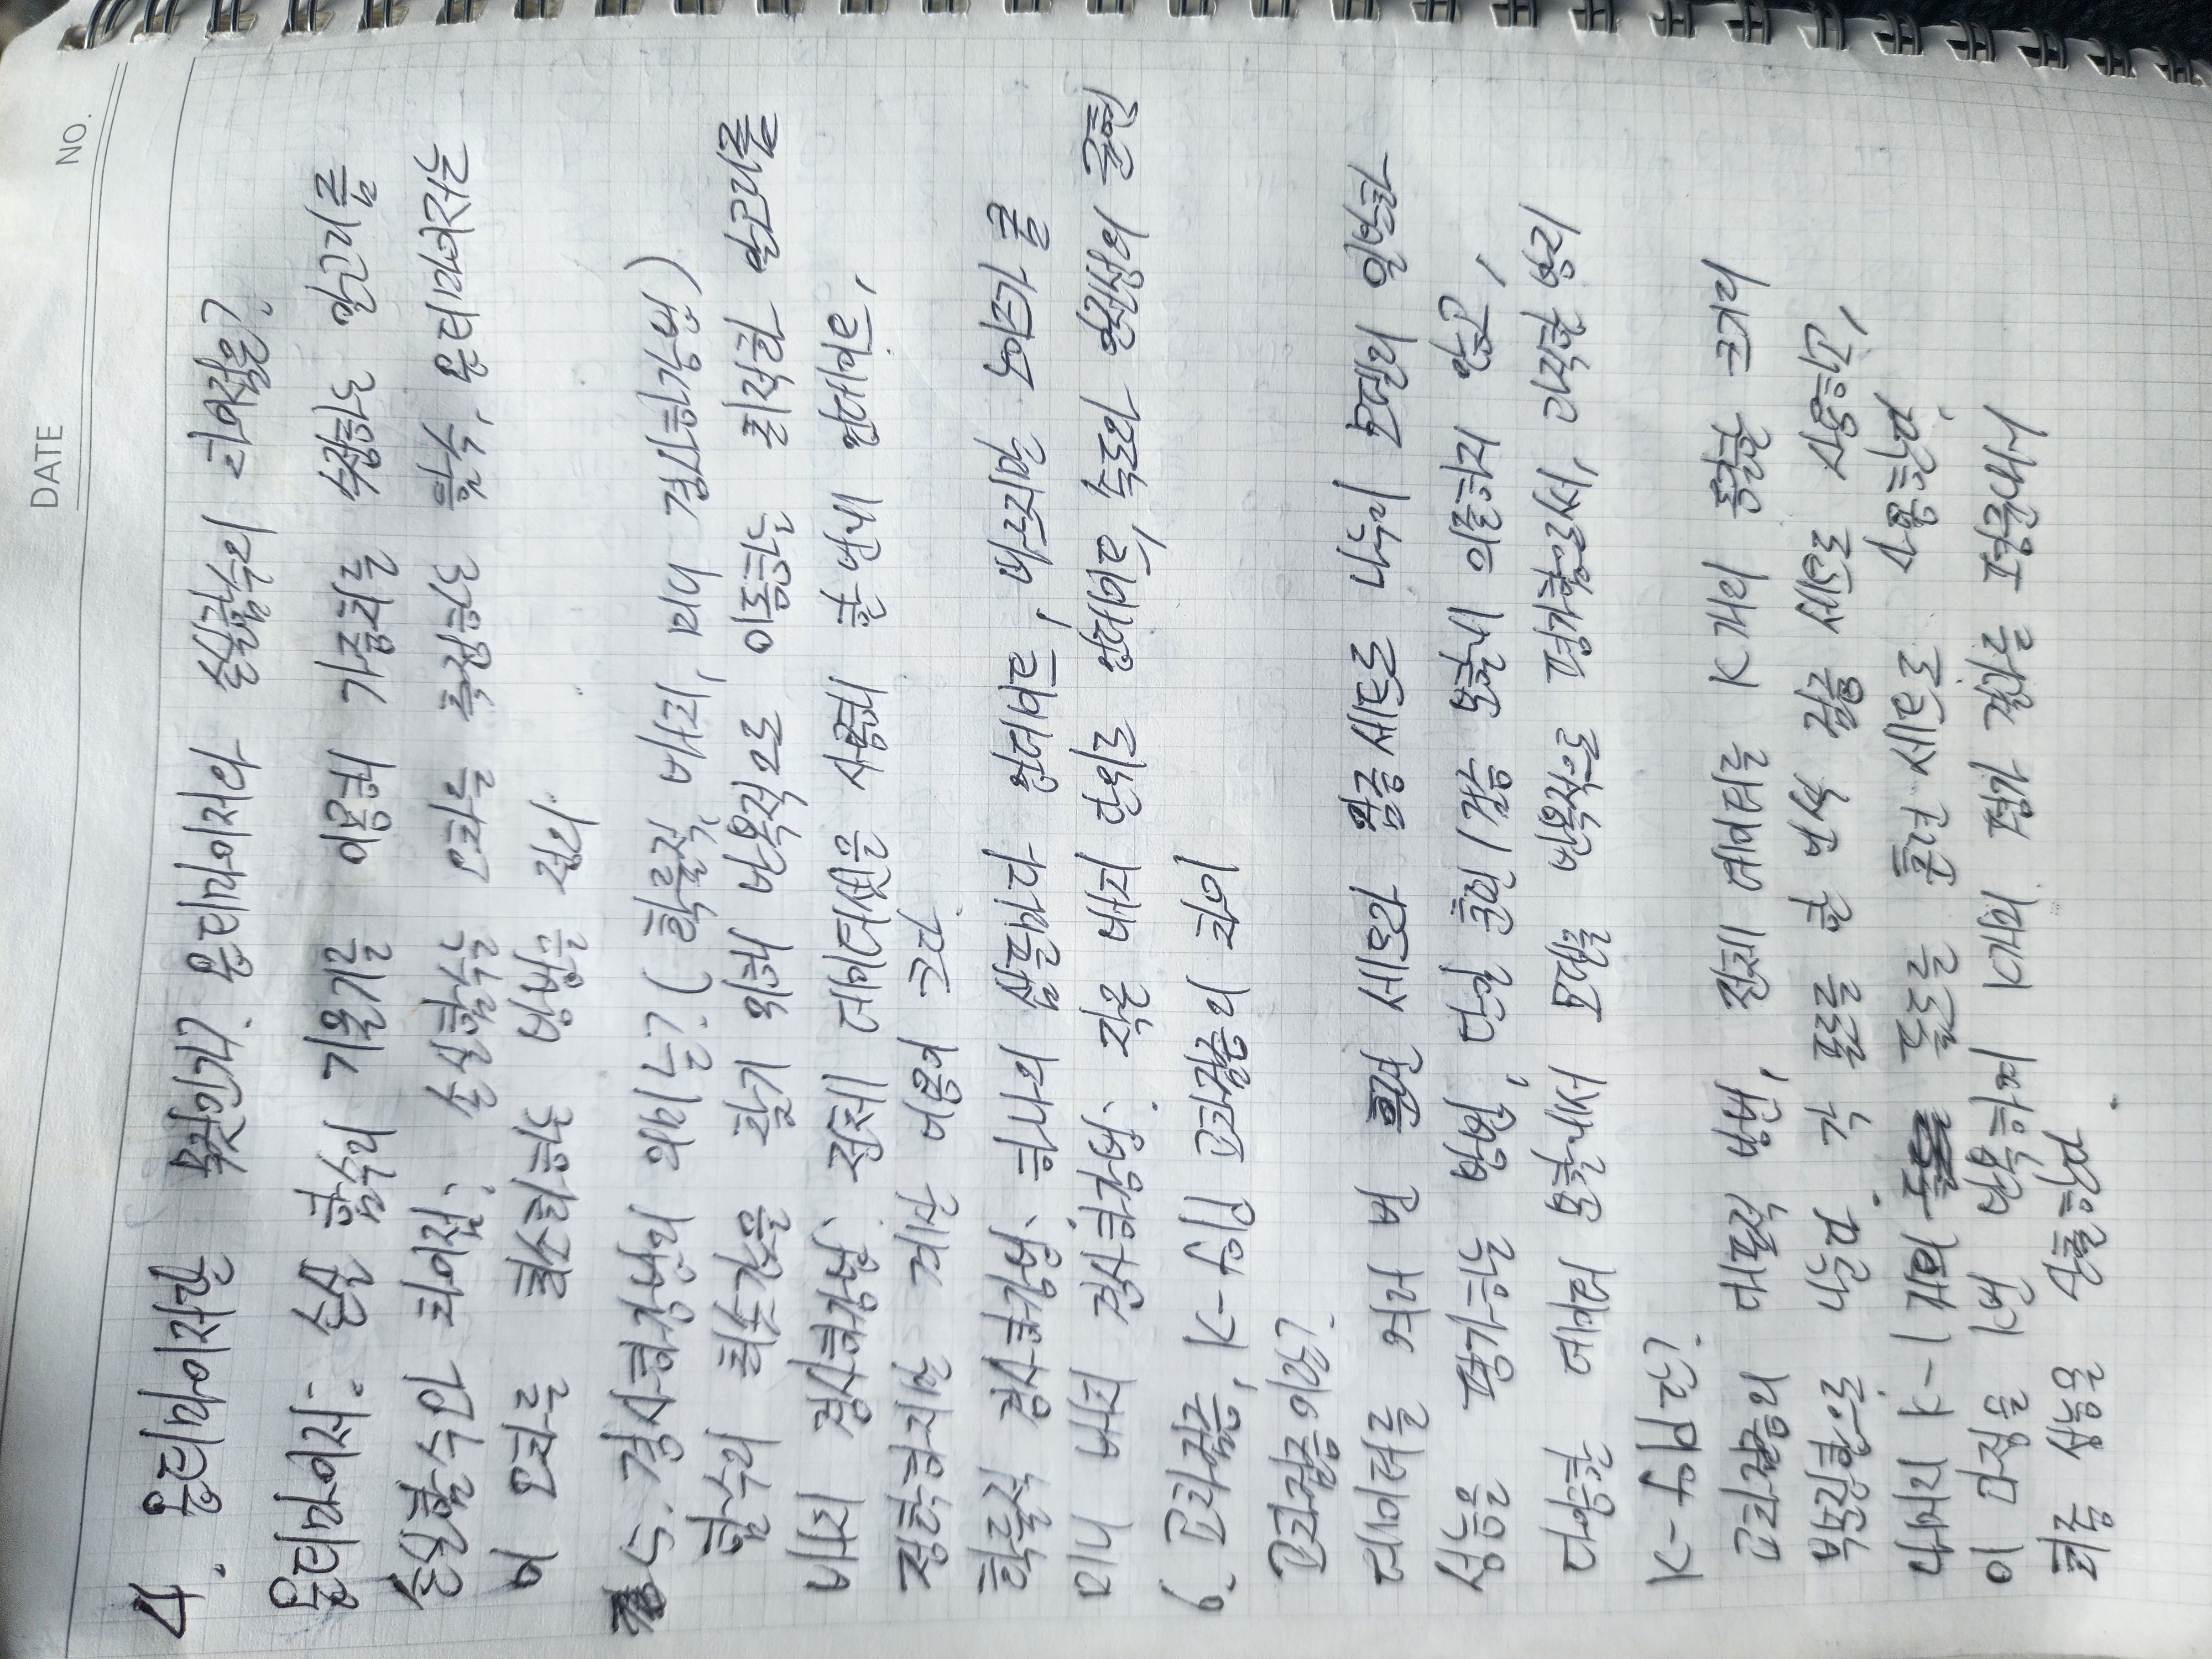 DATE
NO.
4. 옵티마이저란 무엇인가? 옵티마이저와 손실함수의 차이점은?
옵티마이저: 손실 함수의 기울기를 이용해 가중치를 수정하는 알고리즘
손실함수와 차이점: 손실함수는 오차를 측정하는 함수, 옵티마이저는
이 오차를 최소화하는 방법을 정의
5. 경사하강법의 의미는? (확률적, 배치, 미니 경사하강법)
함수의 최솟값을 찾기 위해 반복적으로 이동하는 최적화 알고리즘
배치 경사하강법: 전체 데이터셋을 사용해 한 번에 업데이트,
정확하지만 계산 비용이 크다.
확률적 경사하강법: 하나의 샘플마다 업데이트, 빠르지만 노이즈가 큼
미니 배치 경사하강법: 작은 배치 단위로 업데이트, 속도와 안전성의 균형
6. 교차검증, K-fold 교차검증의 차이
교차검증이란?
데이터를 여러 번 훈련 세트와 검증 세트로 나누어 모델의 일반화
성능을 평가하는 방법, 단일 훈련/검증 분할에 의존하지 않고,
다양한 데이터 분할에서 모델을 반복적으로 평가함으로써, 과적합 방지
K-fold란?
교차검증의 대표적 방법, 전체 데이터를 K개의 동일한 크기의
부분집합으로 나눈다. 각 폴드를 한 번씩 검증 세트로 사용하고,
나머지 K-1개의 폴드를 훈련 세트로 사용한다.
이 과정을 K번 반복하여 K개의 평가 결과를 평균내서
최종 성능을 산출한다.